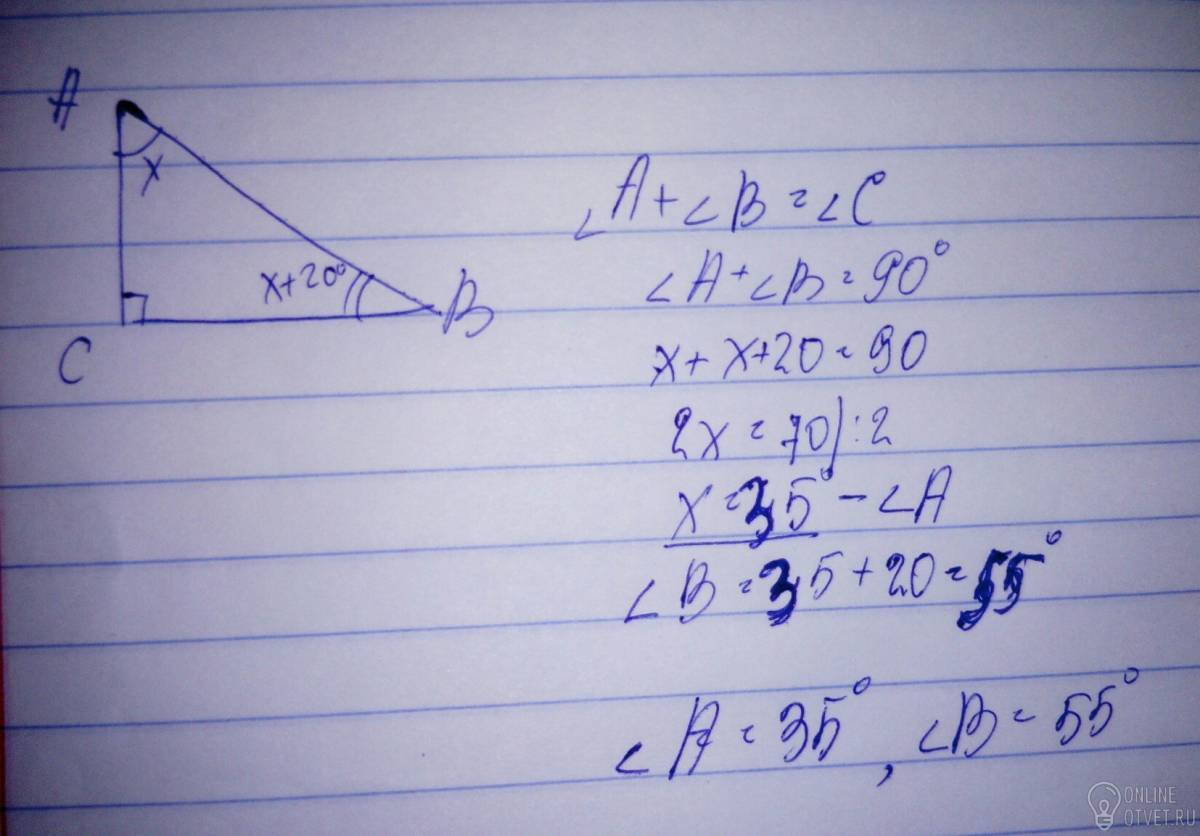 A
x
x+20°
B
C
∠A+∠B=∠C
∠A+∠B=90°
x+x+20=90
2x=70|:2
x=35° - ∠A
∠B=35+20=55°
∠A=35°, ∠B=55°
ONLINE
OTVET.RU